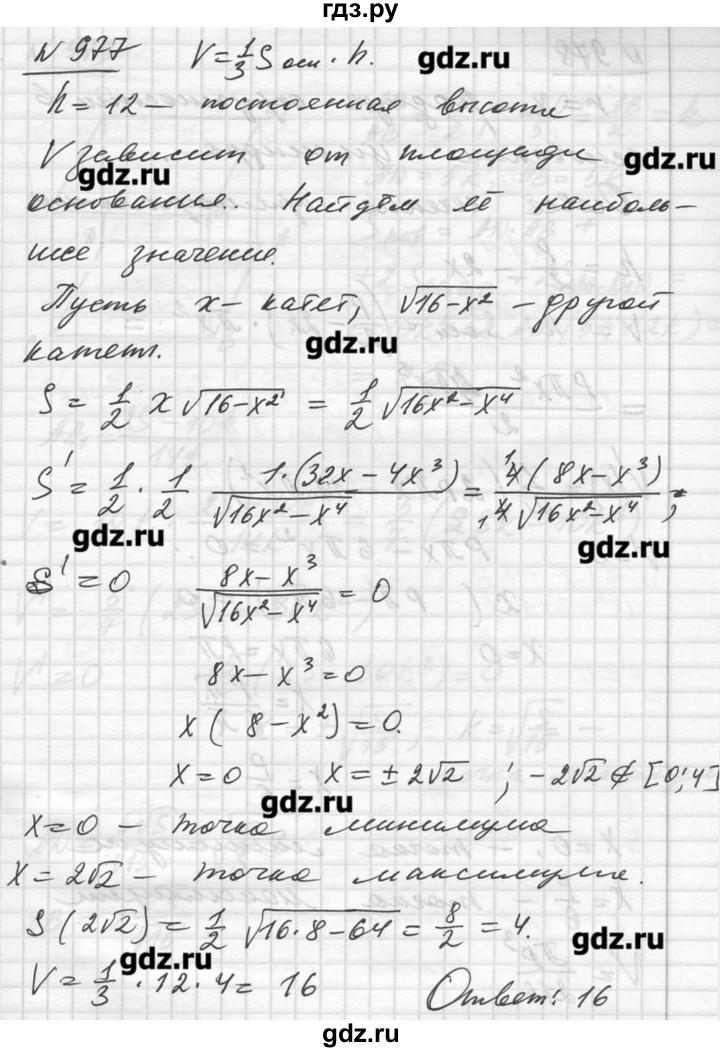 гдз.ру
N 977 V = 1/3 S осн · h. gdz.ru
h = 12 — постоянная высота
V зависит от площади gdz.ru
gdz.ru
основания. Найдём её наиболь-
шее значение.
Пусть x - катет, √(16-x²) - другой
gdz.ru
катет.
S = 1/2 x √(16-x²) = 1/2 √(16x²-x⁴)
S' = 1/2 · 1/2 1·(32x - 4x³)/√(16x²-x⁴) = 4(8x-x³)/4√(16x²-x⁴) ;
gdz.ru gdz.ru
S' = 0 (8x-x³)/√(16x²-x⁴) = 0
8x - x³ = 0
x(8 - x²) = 0.
x = 0 x = ± 2√2 ; -2√2 ∉ [0;4]
gdz.ru
x = 0 — точка минимума
x = 2√2 — точка максимума.
S(2√2) = 1/2 √(16·8-64) = 8/2 = 4. gdz.ru
gdz.ru
V = 1/3 · 12 · 4 = 16 Ответ: 16
gdz.ru